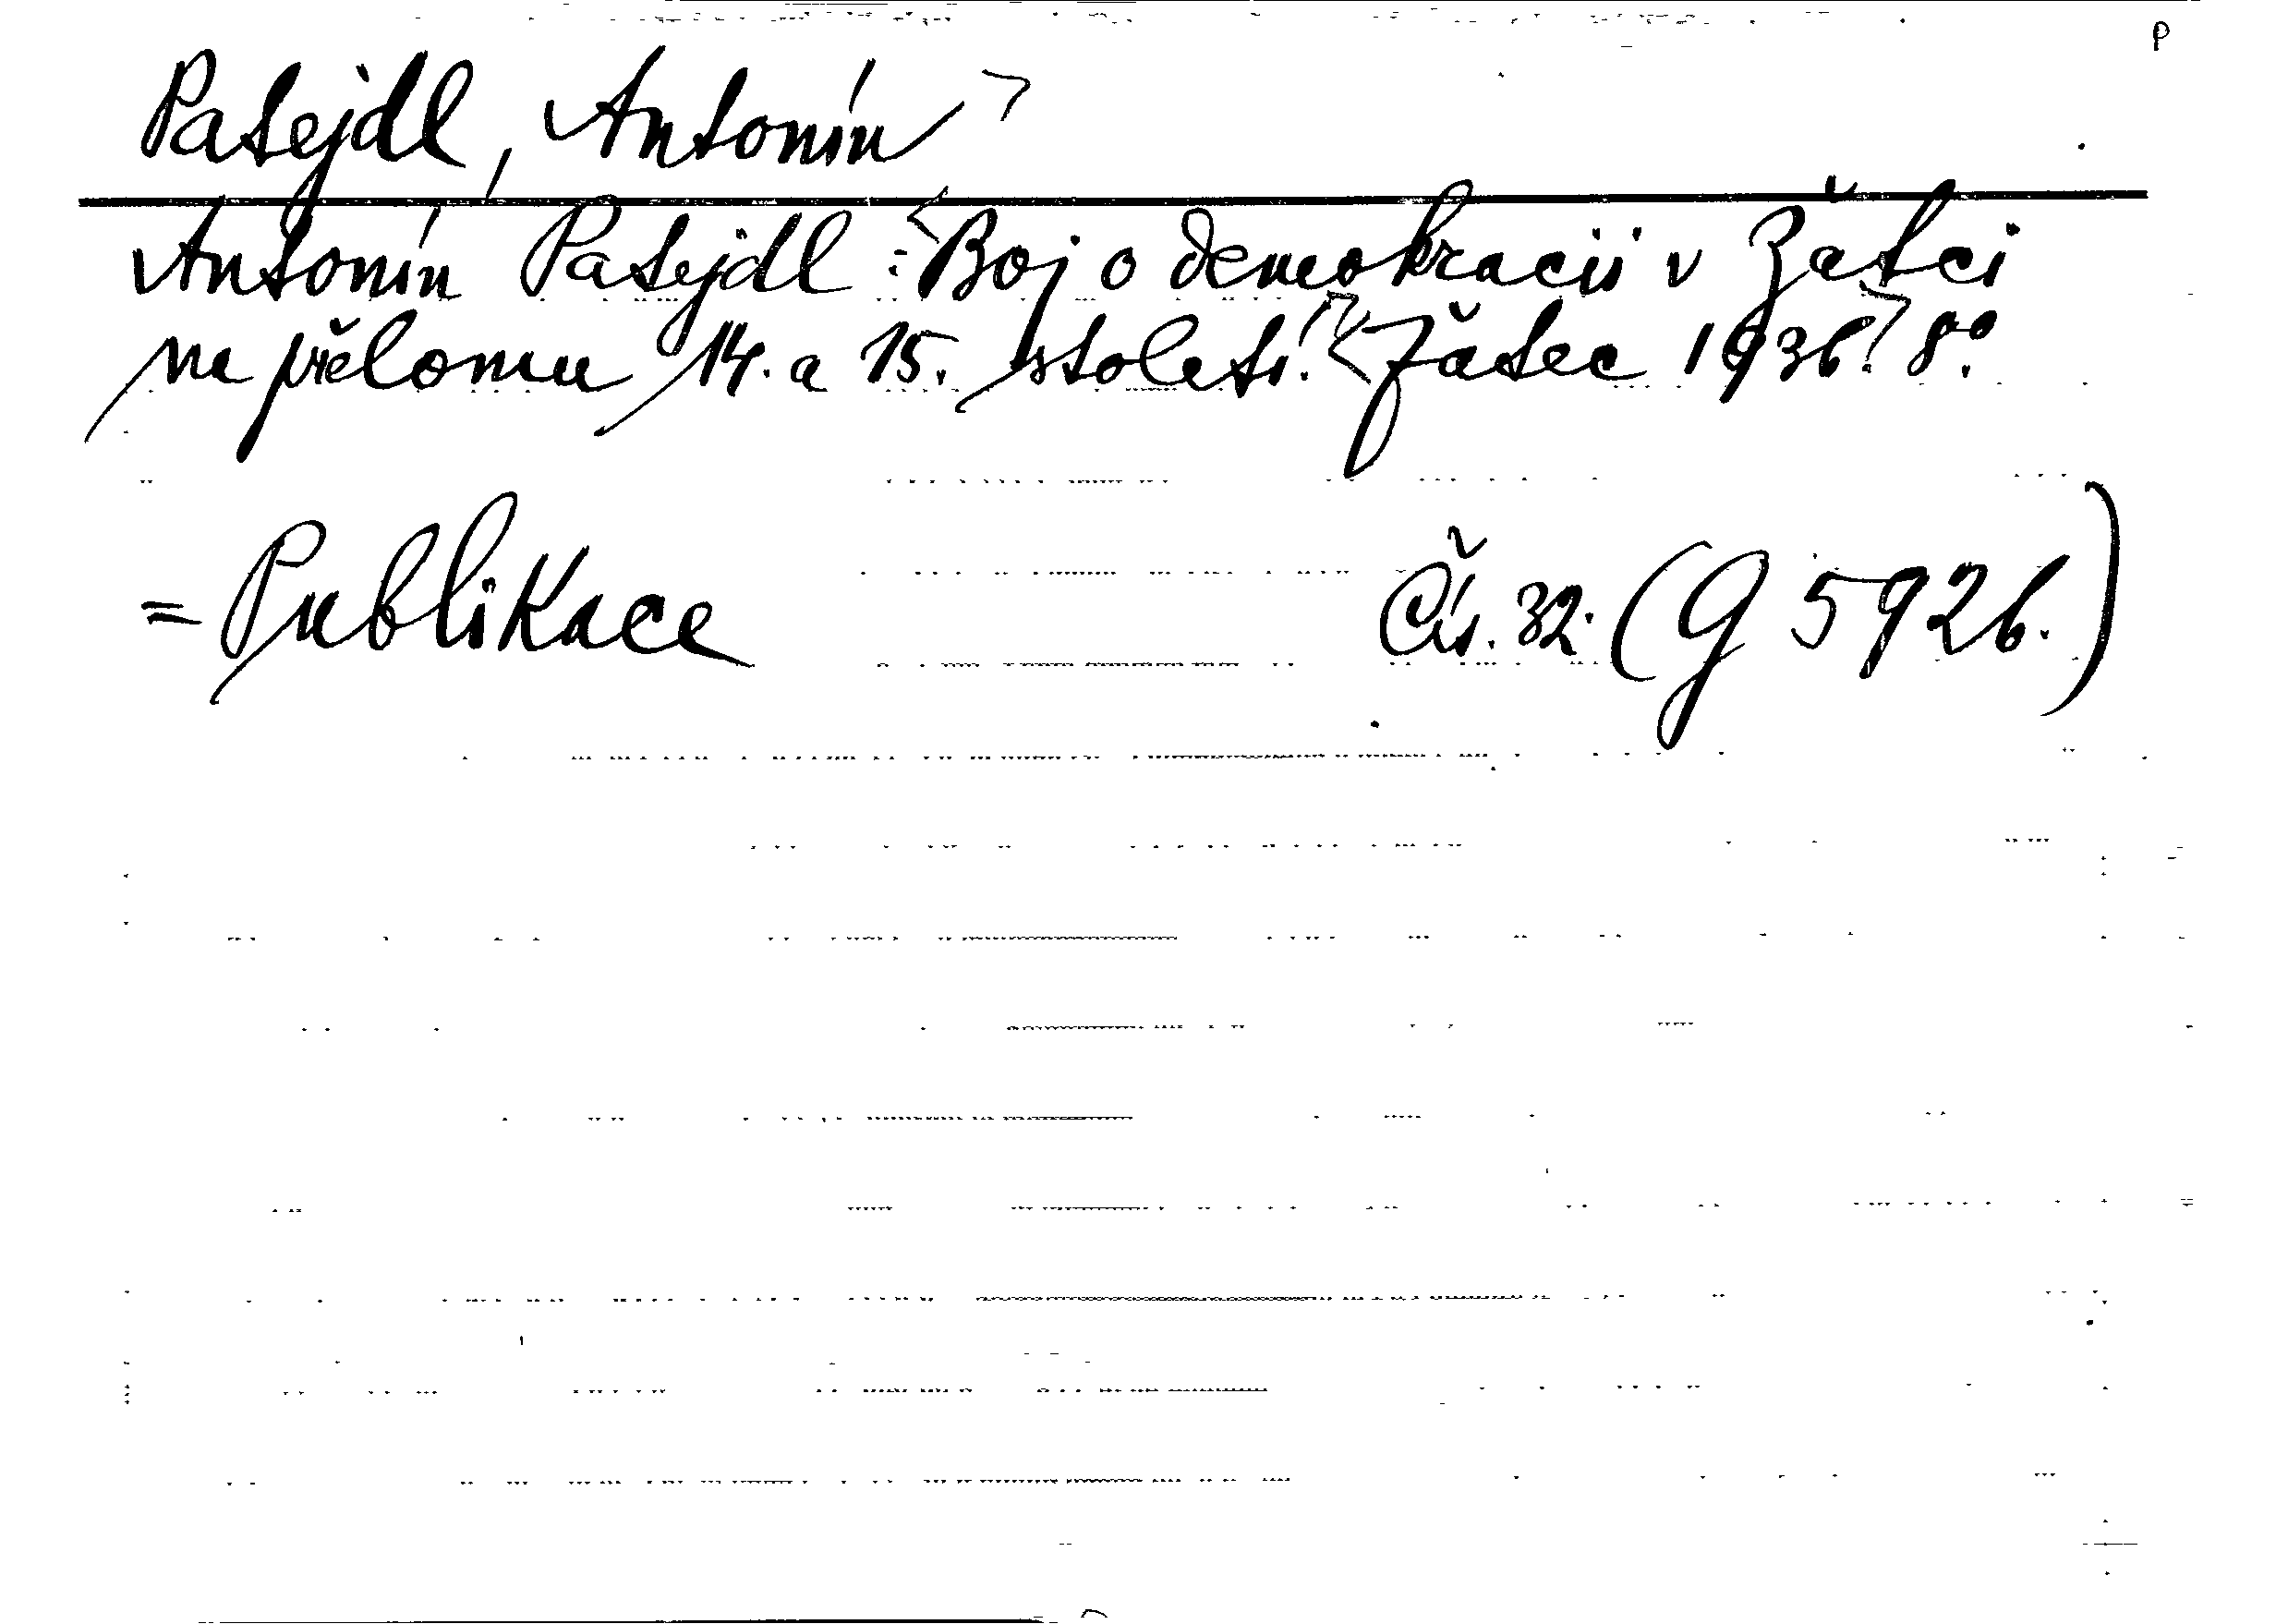 P
Patejdl, Antonín >
Antonín Patejdl: <Boj o demokracii v Žatci
na přelomu 14. a 15. století.> <Žatec 1936.> 8°.
= Publikace Čís. 32. (G 5926.)